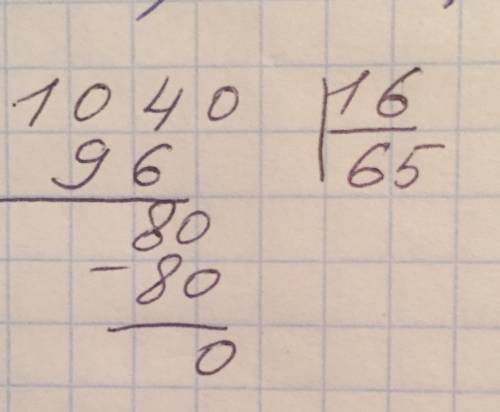 1040 | 16
96 65
80
-80
0